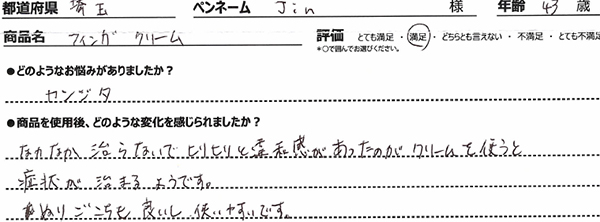 都道府県 埼玉 ペンネーム Jin 様 年齢 43 歳
商品名 フィンガ クリーム 評価 とても満足・満足・どちらとも言えない・不満足・とても不満
*○で囲んでお選びください。
●どのようなお悩みがありましたか？
カンジタ
●商品を使用後、どのような変化を感じられましたか？
なかなか治らないでヒリヒリと違和感があったのがクリームを使うと
症状が治まるようです。
ぬりごこちも良いし使いやすいです。